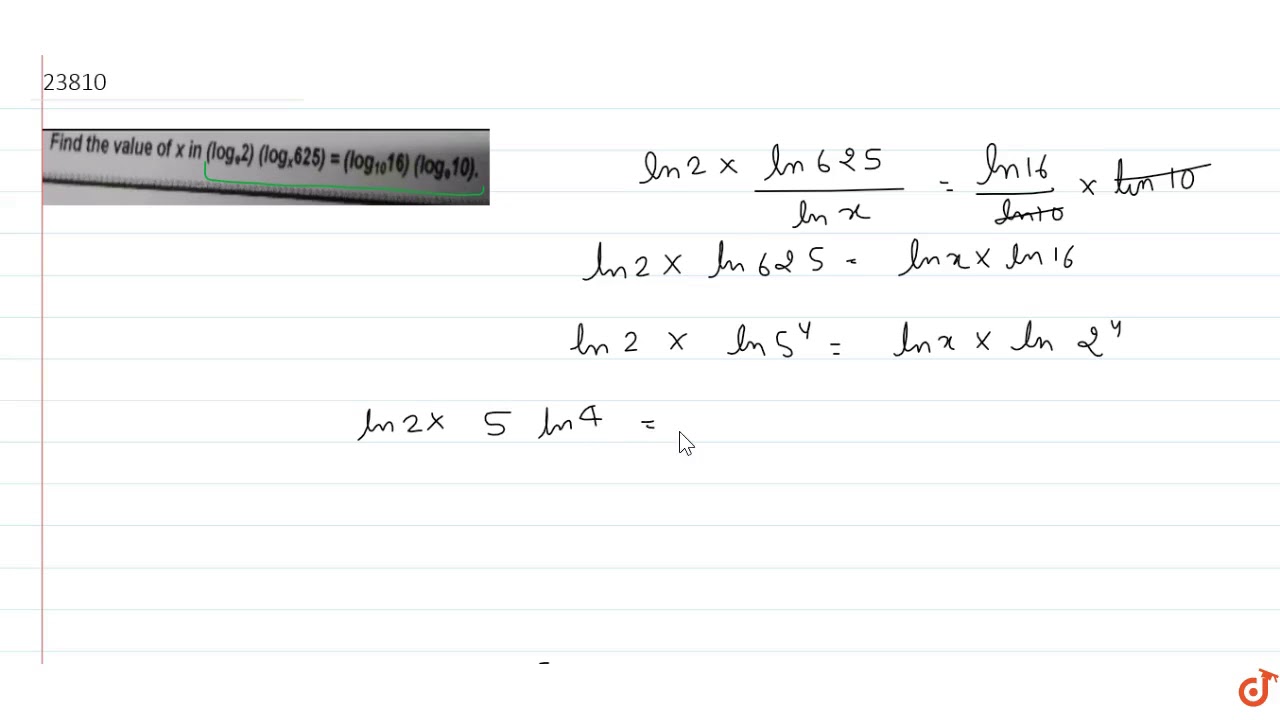 23810
Find the value of x in (logₑ2) (logₓ625) = (log₁₀16) (logₑ10).
ln 2 × ln 625 / ln x = ln 16 / ln 10 × ln 10
ln 2 × ln 625 = ln x × ln 16
ln 2 × ln 5⁴ = ln x × ln 2⁴
ln 2 × 5 ln 4 =